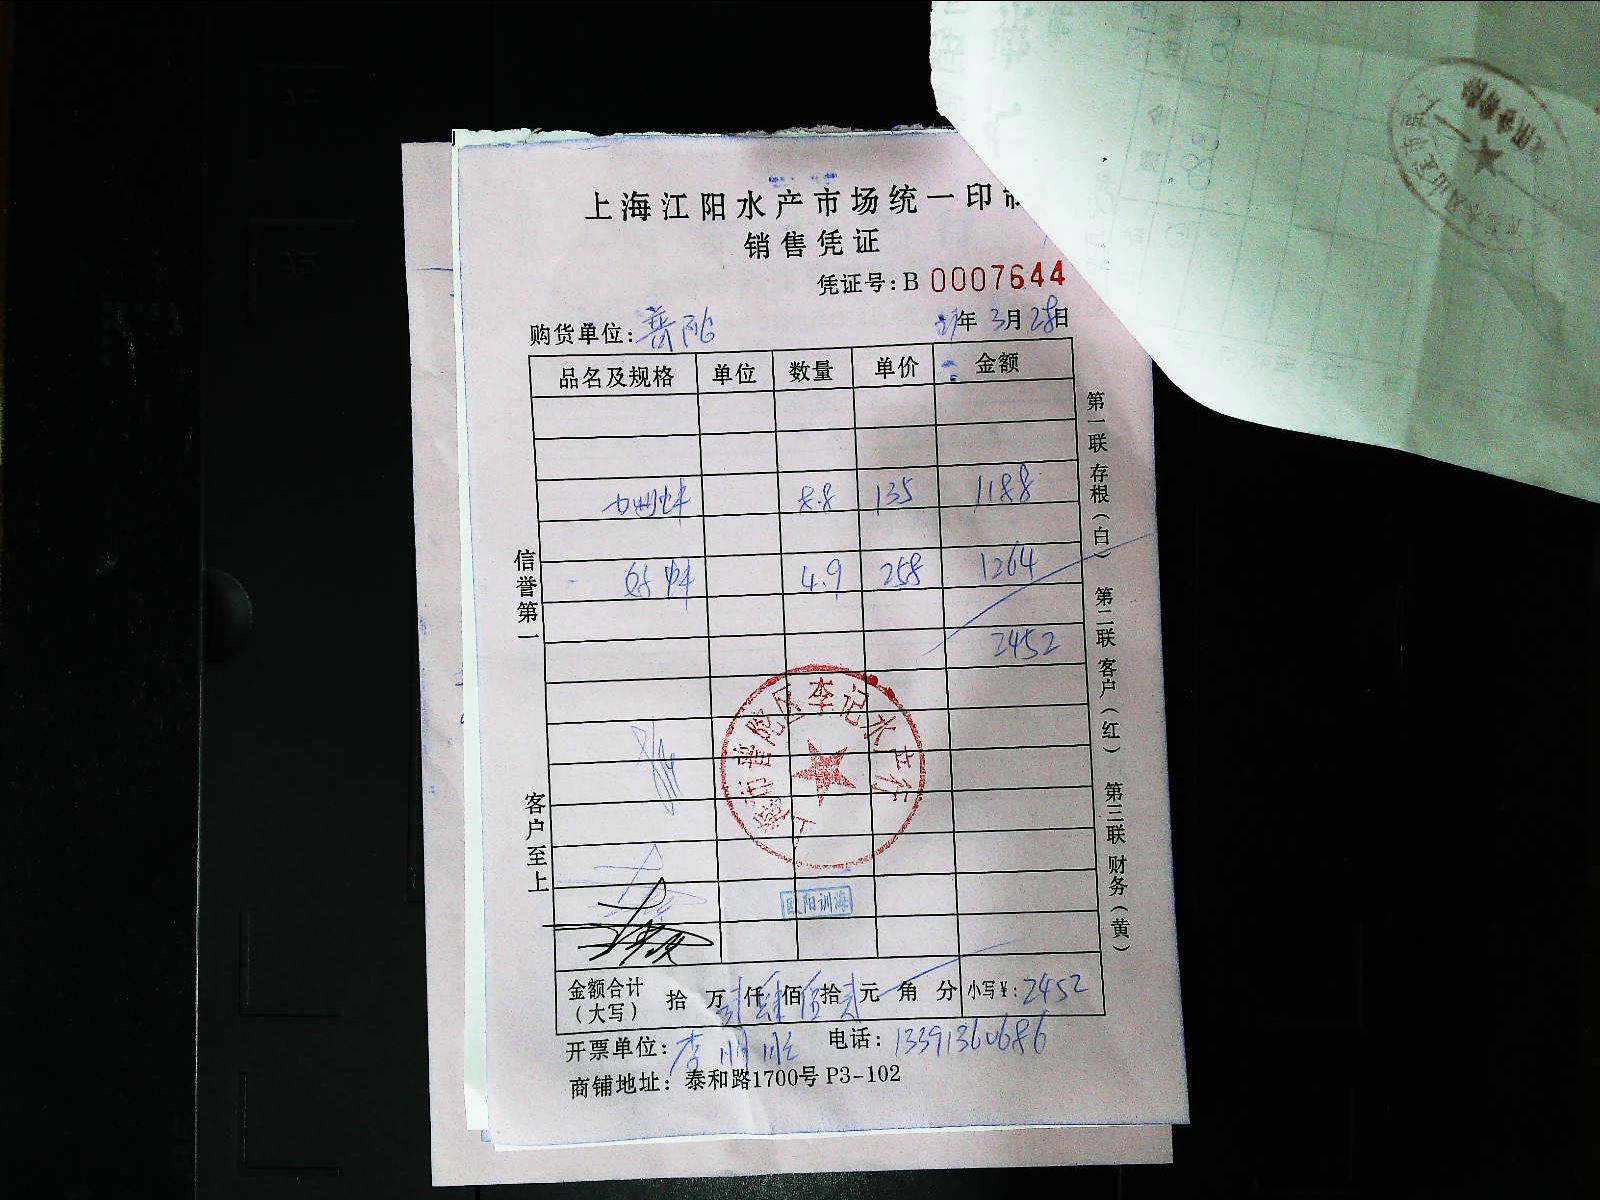 上海江阳水产市场统一印
销售凭证
凭证号:B 0007644
购货单位:普陀 年3月28日
品名及规格 单位 数量 单价 金额
8.8 135 1188
4.9 258 1264
2452
信誉第一
客户至上
第一联存根(白) 第二联客户(红) 第三联财务(黄)
上海市普陀区李记水产行
欧阳训海
金额合计(大写) 拾 万 贰仟肆佰伍拾贰元 角 分 小写¥:2452
开票单位:李 电话:13391360686
商铺地址:泰和路1700号 P3-102